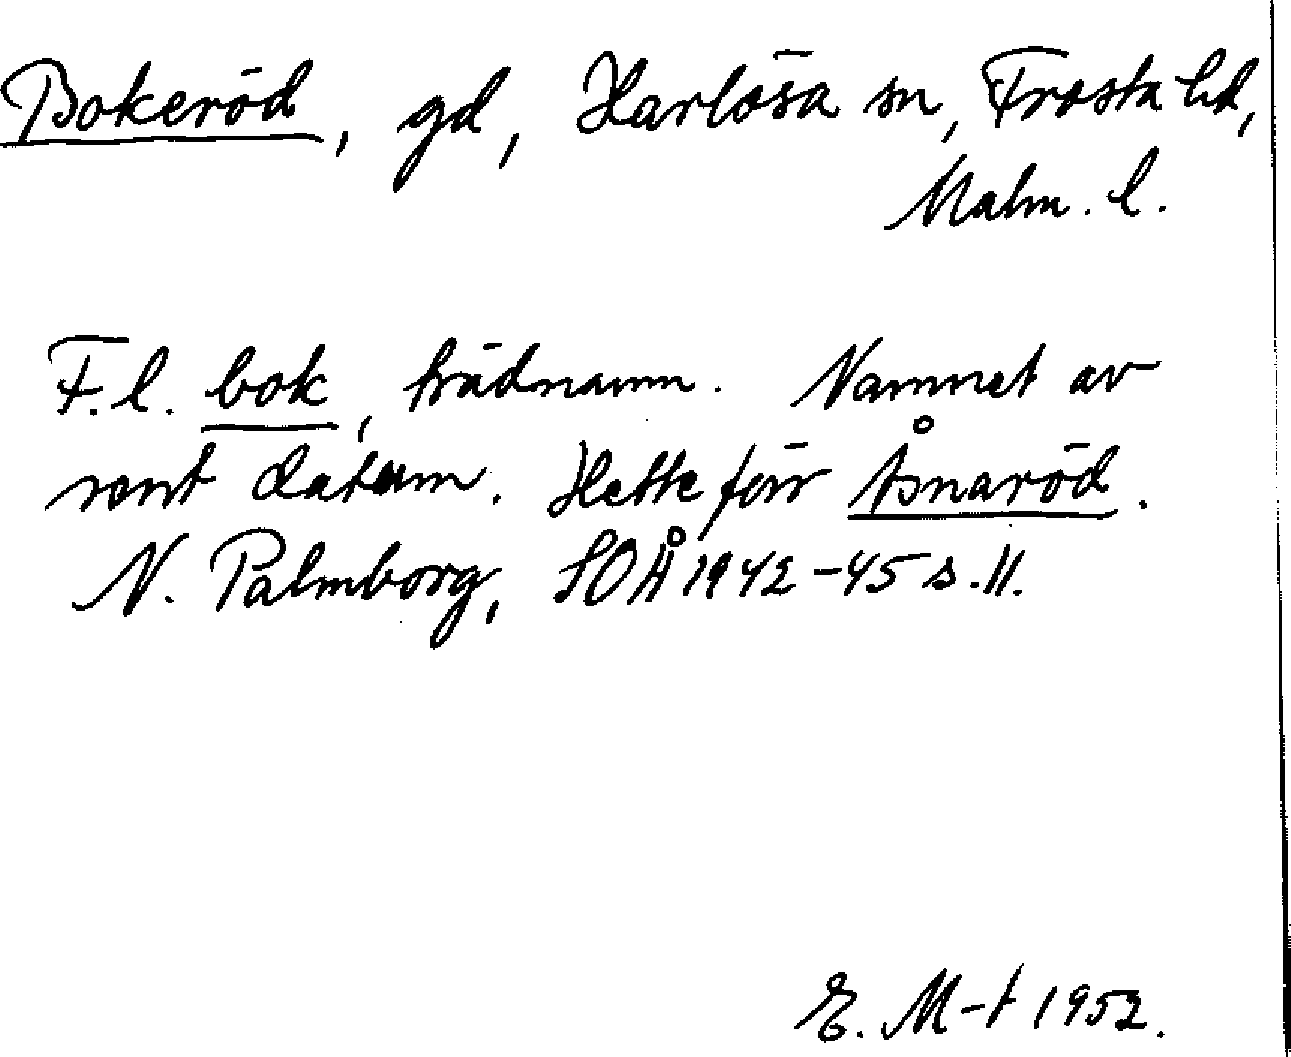 Bokeröd, gd, Harlösa sn, Frosta hd,
Malm. l.
F.l. bok, trädnamn. Namnet av
sent datum. Hette förr Åsnaröd.
N. Palmborg, SOÅ 1942-45 s. 11.
E. M-t 1952.